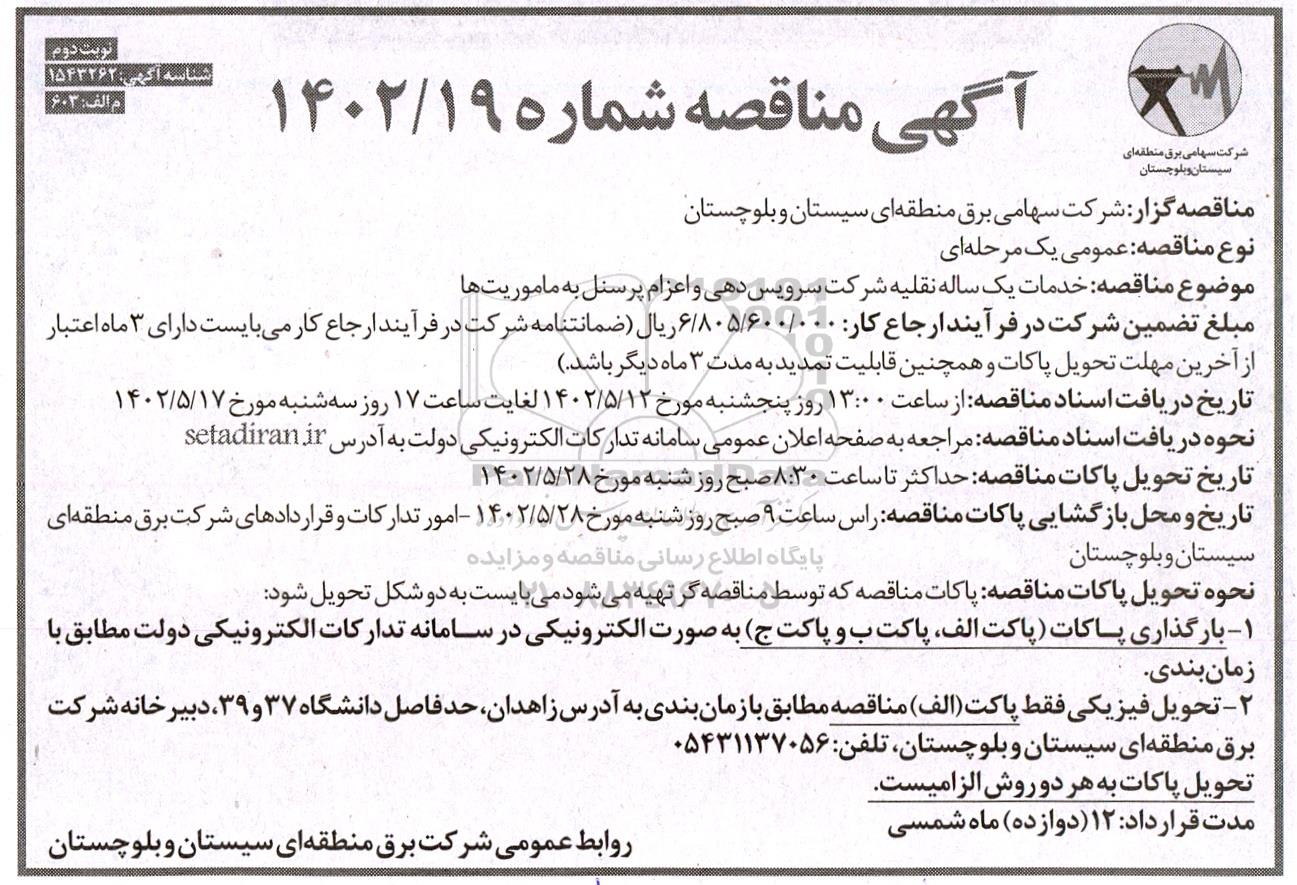 نوبت دوم
شناسه آگهی: ۱۵۴۳۲۶۲
م الف: ۶۰۳
آگهی مناقصه شماره ۱۴۰۲/۱۹
شرکت سهامی برق منطقه‌ای
سیستان و بلوچستان
مناقصه گزار: شرکت سهامی برق منطقه‌ای سیستان و بلوچستان
نوع مناقصه: عمومی یک مرحله‌ای
موضوع مناقصه: خدمات یک ساله نقلیه شرکت سرویس‌دهی و اعزام پرسنل به ماموریت‌ها
مبلغ تضمین شرکت در فرآیند ارجاع کار: ۶/۸۰۵/۶۰۰/۰۰۰ ریال (ضمانتنامه شرکت در فرآیند ارجاع کار می‌بایست دارای ۳ ماه اعتبار
از آخرین مهلت تحویل پاکات و همچنین قابلیت تمدید به مدت ۳ ماه دیگر باشد.)
تاریخ دریافت اسناد مناقصه: از ساعت ۱۳:۰۰ روز پنجشنبه مورخ ۱۴۰۲/۵/۱۲ لغایت ساعت ۱۷ روز سه‌شنبه مورخ ۱۴۰۲/۵/۱۷
نحوه دریافت اسناد مناقصه: مراجعه به صفحه اعلان عمومی سامانه تدارکات الکترونیکی دولت به آدرس setadiran.ir
تاریخ تحویل پاکات مناقصه: حداکثر تا ساعت ۸:۳۰ صبح روز شنبه مورخ ۱۴۰۲/۵/۲۸
ParsNamadData
تاریخ و محل بازگشایی پاکات مناقصه: راس ساعت ۹ صبح روز شنبه مورخ ۱۴۰۲/۵/۲۸ -امور تدارکات و قراردادهای شرکت برق منطقه‌ای
سیستان و بلوچستان
پایگاه اطلاع رسانی مناقصه و مزایده
نحوه تحویل پاکات مناقصه: پاکات مناقصه که توسط مناقصه‌گر تهیه می‌شود می‌بایست به دو شکل تحویل شود:
۰۲۱-۸۸۳۴۹۶۷۰-۵
۱- بارگذاری پاکات (پاکت الف، پاکت ب و پاکت ج) به صورت الکترونیکی در سامانه تدارکات الکترونیکی دولت مطابق با
زمان‌بندی.
۲- تحویل فیزیکی فقط پاکت (الف) مناقصه مطابق با زمان‌بندی به آدرس زاهدان، حدفاصل دانشگاه ۳۷ و ۳۹، دبیرخانه شرکت
برق منطقه‌ای سیستان و بلوچستان، تلفن: ۰۵۴۳۱۱۳۷۰۵۶
تحویل پاکات به هر دو روش الزامیست.
مدت قرارداد: ۱۲ (دوازده) ماه شمسی
روابط عمومی شرکت برق منطقه‌ای سیستان و بلوچستان